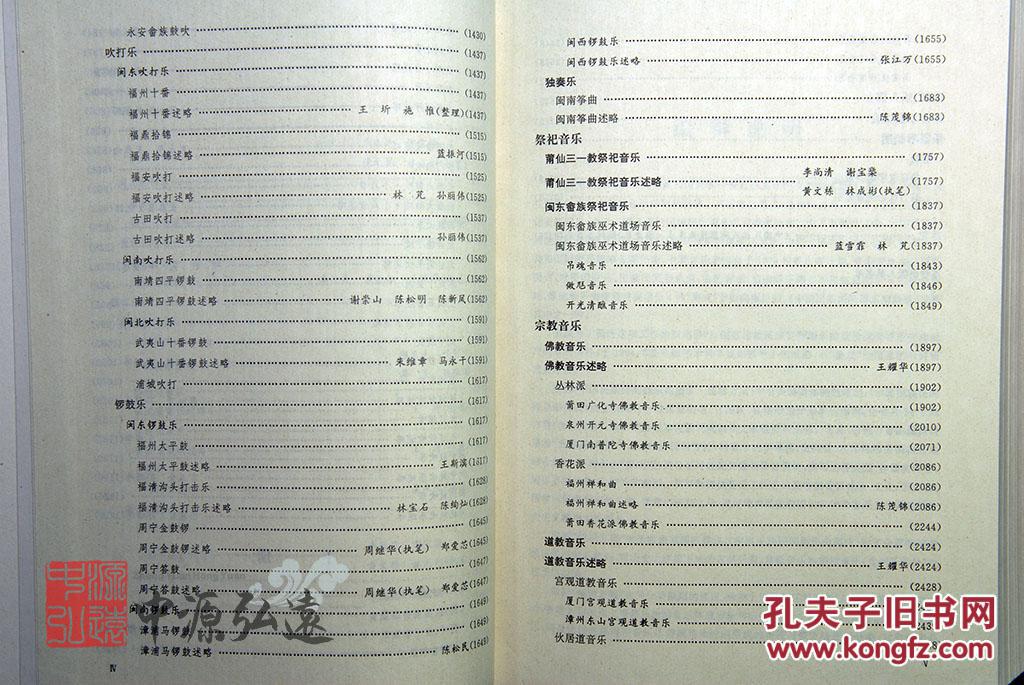 永安畲族鼓吹 (1430)
吹打乐 (1437)
闽东吹打乐 (1437)
福州十番 (1437)
福州十番述略 王 圻 施 惟(整理)(1437)
福鼎拾锦 (1515)
福鼎拾锦述略 蓝振河(1515)
福安吹打 (1525)
福安吹打述略 林 芃 孙丽伟(1525)
古田吹打 (1537)
古田吹打述略 孙丽伟(1537)
闽南吹打乐 (1562)
南靖四平锣鼓 (1562)
南靖四平锣鼓述略 谢崇山 陈松明 陈新凤(1562)
闽北吹打乐 (1591)
武夷山十番锣鼓 (1591)
武夷山十番锣鼓述略 朱维章 马永干(1591)
浦城吹打 (1617)
锣鼓乐 (1617)
闽东锣鼓乐 (1617)
福州太平鼓 (1617)
福州太平鼓述略 王斯滨(1617)
福清沟头打击乐 (1628)
福清沟头打击乐述略 林宝石 陈绚灿(1628)
周宁金鼓锣 (1645)
周宁金鼓锣述略 周继华(执笔) 郑爱芯(1645)
周宁答鼓 (1647)
周宁答鼓述略 周继华(执笔) 郑爱芯(1647)
闽南锣鼓乐 (1649)
漳浦马锣鼓 (1649)
漳浦马锣鼓述略 陈松民(1649)
Ⅳ
闽西锣鼓乐 (1655)
闽西锣鼓乐述略 张江万(1655)
独奏乐
闽南筝曲 (1683)
闽南筝曲述略 陈茂锦(1683)
祭祀音乐
莆仙三一教祭祀音乐 (1757)
莆仙三一教祭祀音乐述略 李尚清 谢宝燊 黄文栋 林成彬(执笔) (1757)
闽东畲族祭祀音乐 (1837)
闽东畲族巫术道场音乐 (1837)
闽东畲族巫术道场音乐述略 蓝雪霏 林 芃(1837)
吊魂音乐 (1843)
做尫音乐 (1846)
开光清醮音乐 (1849)
宗教音乐
佛教音乐 (1897)
佛教音乐述略 王耀华(1897)
丛林派 (1902)
莆田广化寺佛教音乐 (1902)
泉州开元寺佛教音乐 (2010)
厦门南普陀寺佛教音乐 (2071)
香花派 (2086)
福州禅和曲 (2086)
福州禅和曲述略 陈茂锦(2086)
莆田香花派佛教音乐 (2244)
道教音乐 (2424)
道教音乐述略 王耀华(2424)
宫观道教音乐 (2428)
厦门宫观道教音乐
漳州东山宫观道教音乐
伙居道音乐
Ⅴ
源弘遠
孔夫子旧书网
www.kongfz.com